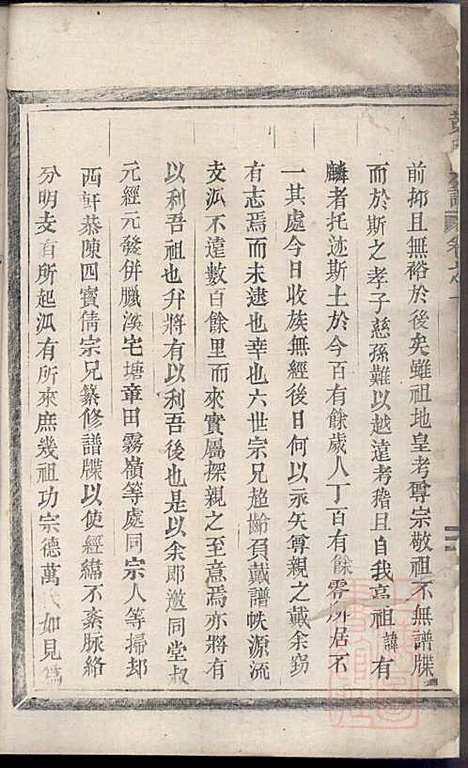 前抑且無裕於後矣雖祖地皇考尊宗敬祖不無譜牒
而於斯之孝子慈孫難以越達考稽且自我高祖諱有
麟者托迹斯土於今百有餘歲人丁百有餘零所居不
一其處今日收族無經後日何以示矢尊親之戴余窃
有志焉而未逮也幸也六世宗兄趙黼負戴譜帙源流
支派不遠數百餘里而來實屬探親之至意焉亦將有
以利吾祖也并將有以利吾後也是以余郎邀同堂叔
元經元發併臘溪宅塘章田霧嶺等處同宗人等掃却
西軒恭陳四寶倩宗兄纂修譜牒以使經緯不紊脉絡
分明支有所起派有所來庶幾祖功宗德萬代如見